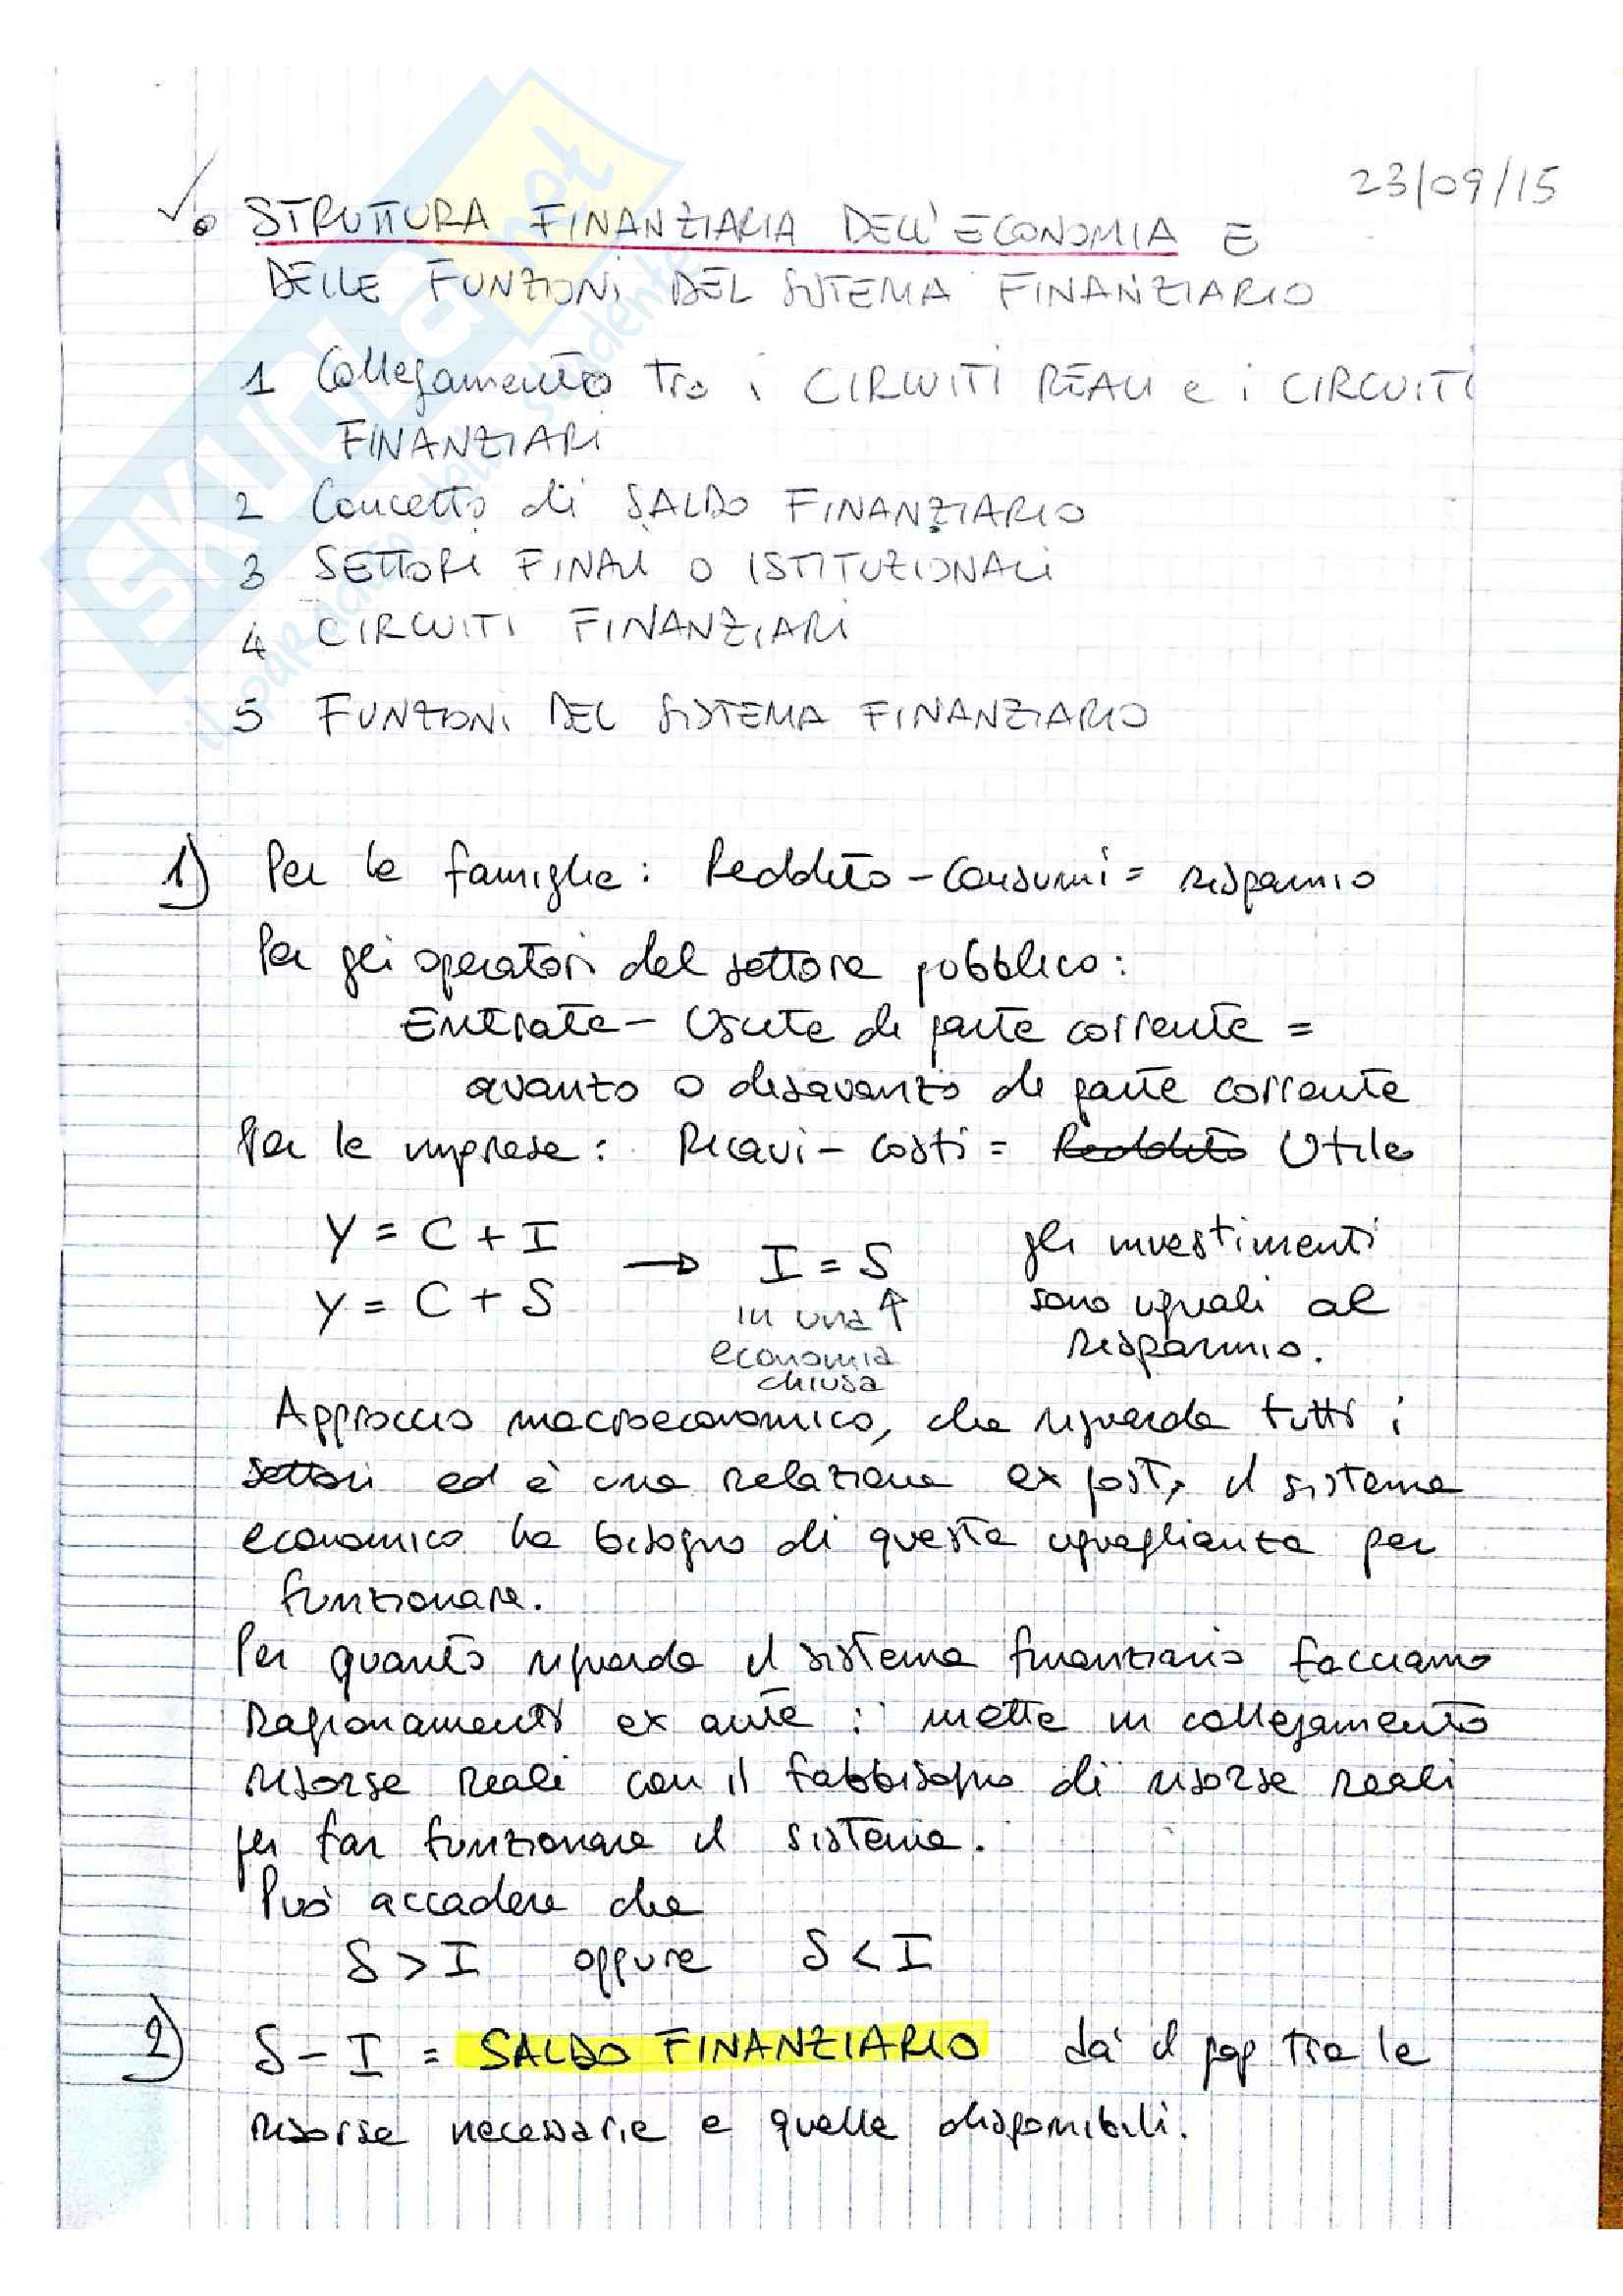 23/09/15
STRUTTURA FINANZIARIA DELL'ECONOMIA E
DELLE FUNZIONI DEL SISTEMA FINANZIARIO
1 Collegamento tra i CIRCUITI REALI e i CIRCUITI
FINANZIARI
2 Concetto di SALDO FINANZIARIO
3 SETTORI FINALI O ISTITUZIONALI
4 CIRCUITI FINANZIARI
5 FUNZIONI DEL SISTEMA FINANZIARIO
1) Per le famiglie: Reddito - Consumi = risparmio
Per gli operatori del settore pubblico:
Entrate - Uscite di parte corrente =
avanzo o disavanzo di parte corrente
Per le imprese: Ricavi - costi = Reddito Utile
Y = C + I
Y = C + S
→ I = S
in una ↑
economia
chiusa
gli investimenti
sono uguali al
risparmio.
Approccio macroeconomico, che riguarda tutti i
settori ed è una relazione ex post, il sistema
economico ha bisogno di questa uguaglianza per
funzionare.
Per quanto riguarda il sistema finanziario facciamo
ragionamenti ex ante : mette in collegamento
risorse reali con il fabbisogno di risorse reali
per far funzionare il sistema.
Può accadere che
S > I oppure S < I
2) S - I = SALDO FINANZIARIO dà il gap tra le
risorse necessarie e quelle disponibili.
SKUOLA.net
il paradiso dello studente